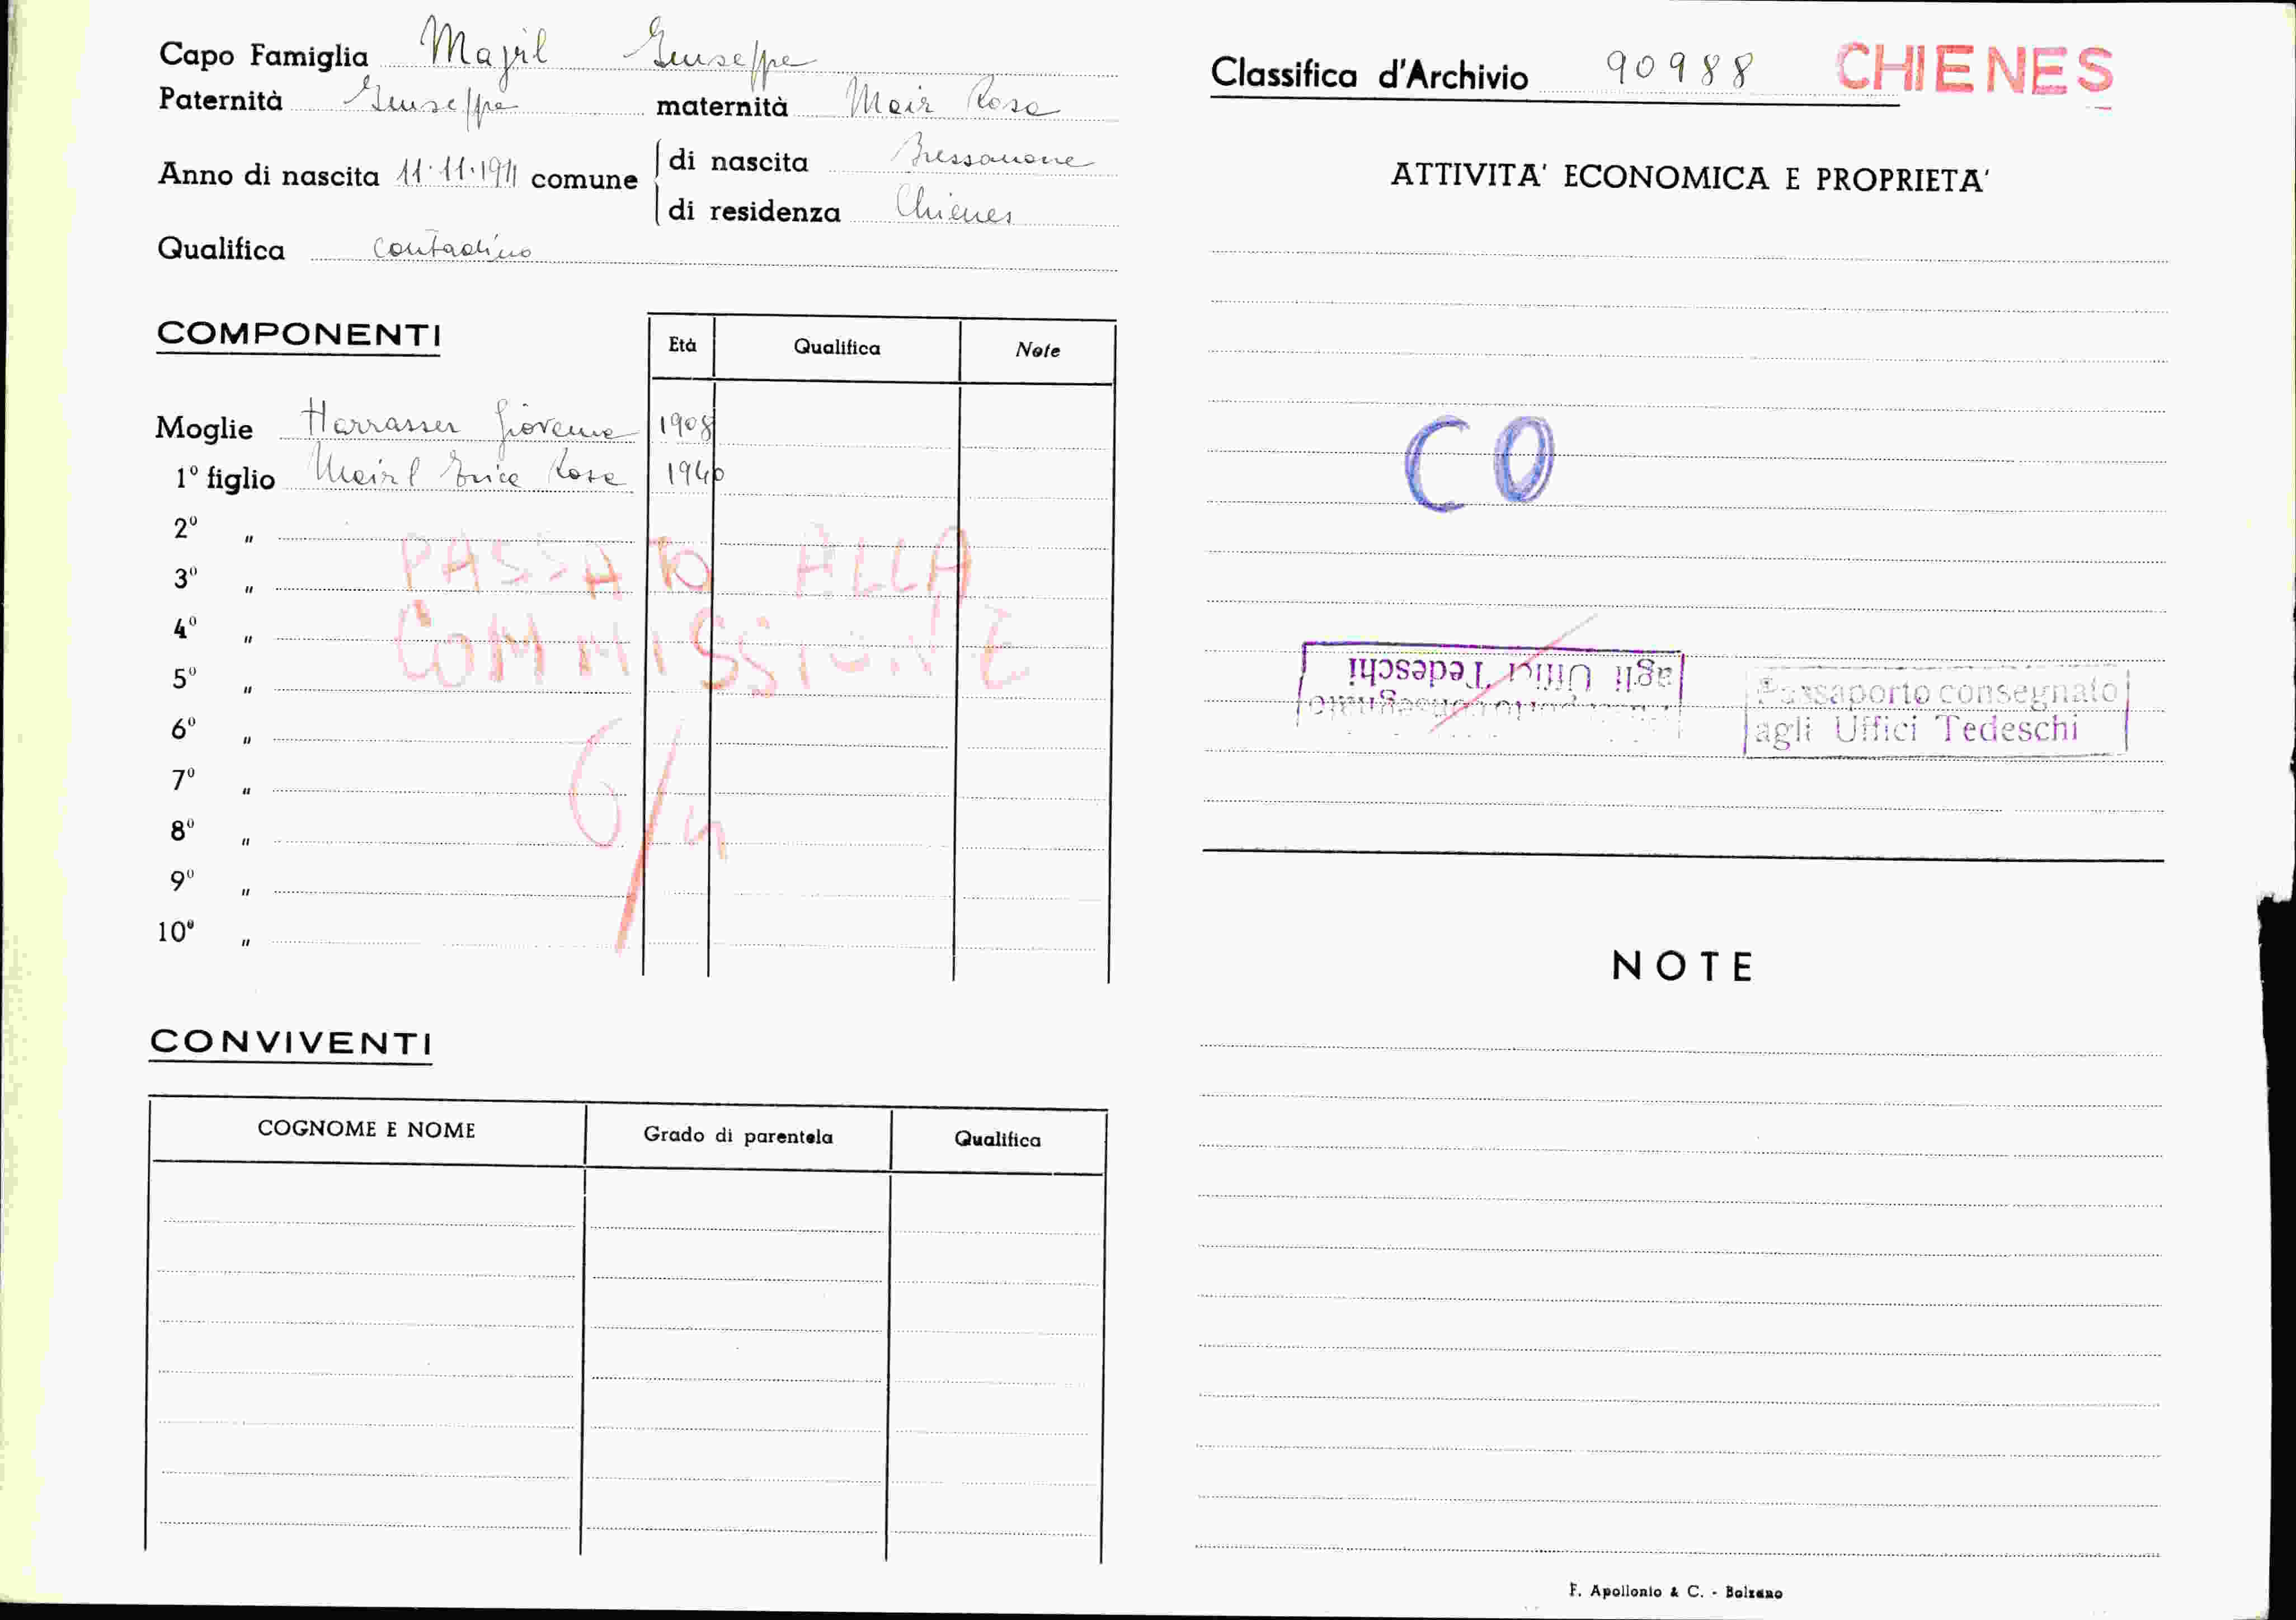 Capo Famiglia Majrl Giuseppe
Paternità Giuseppe maternità Mair Rosa
Anno di nascita 11.11.1911 comune
di nascita Bressanone
di residenza Chienes
Qualifica contadino
COMPONENTI
Età Qualifica Note
Moglie Harrasser Giovanna 1908
1º figlio Mairl Erica Rosa 1940
2º "
3º "
4º "
5º "
6º "
7º "
8º "
9º "
10º "
PASSATO ALLA
COMMISSIONE
6/4
CONVIVENTI
COGNOME E NOME Grado di parentela Qualifica
Classifica d'Archivio 90988 CHIENES
ATTIVITA' ECONOMICA E PROPRIETA'
CO
Passaporto consegnato
agli Uffici Tedeschi
Passaporto consegnato
agli Uffici Tedeschi
NOTE
F. Apollonio & C. - Bolzano